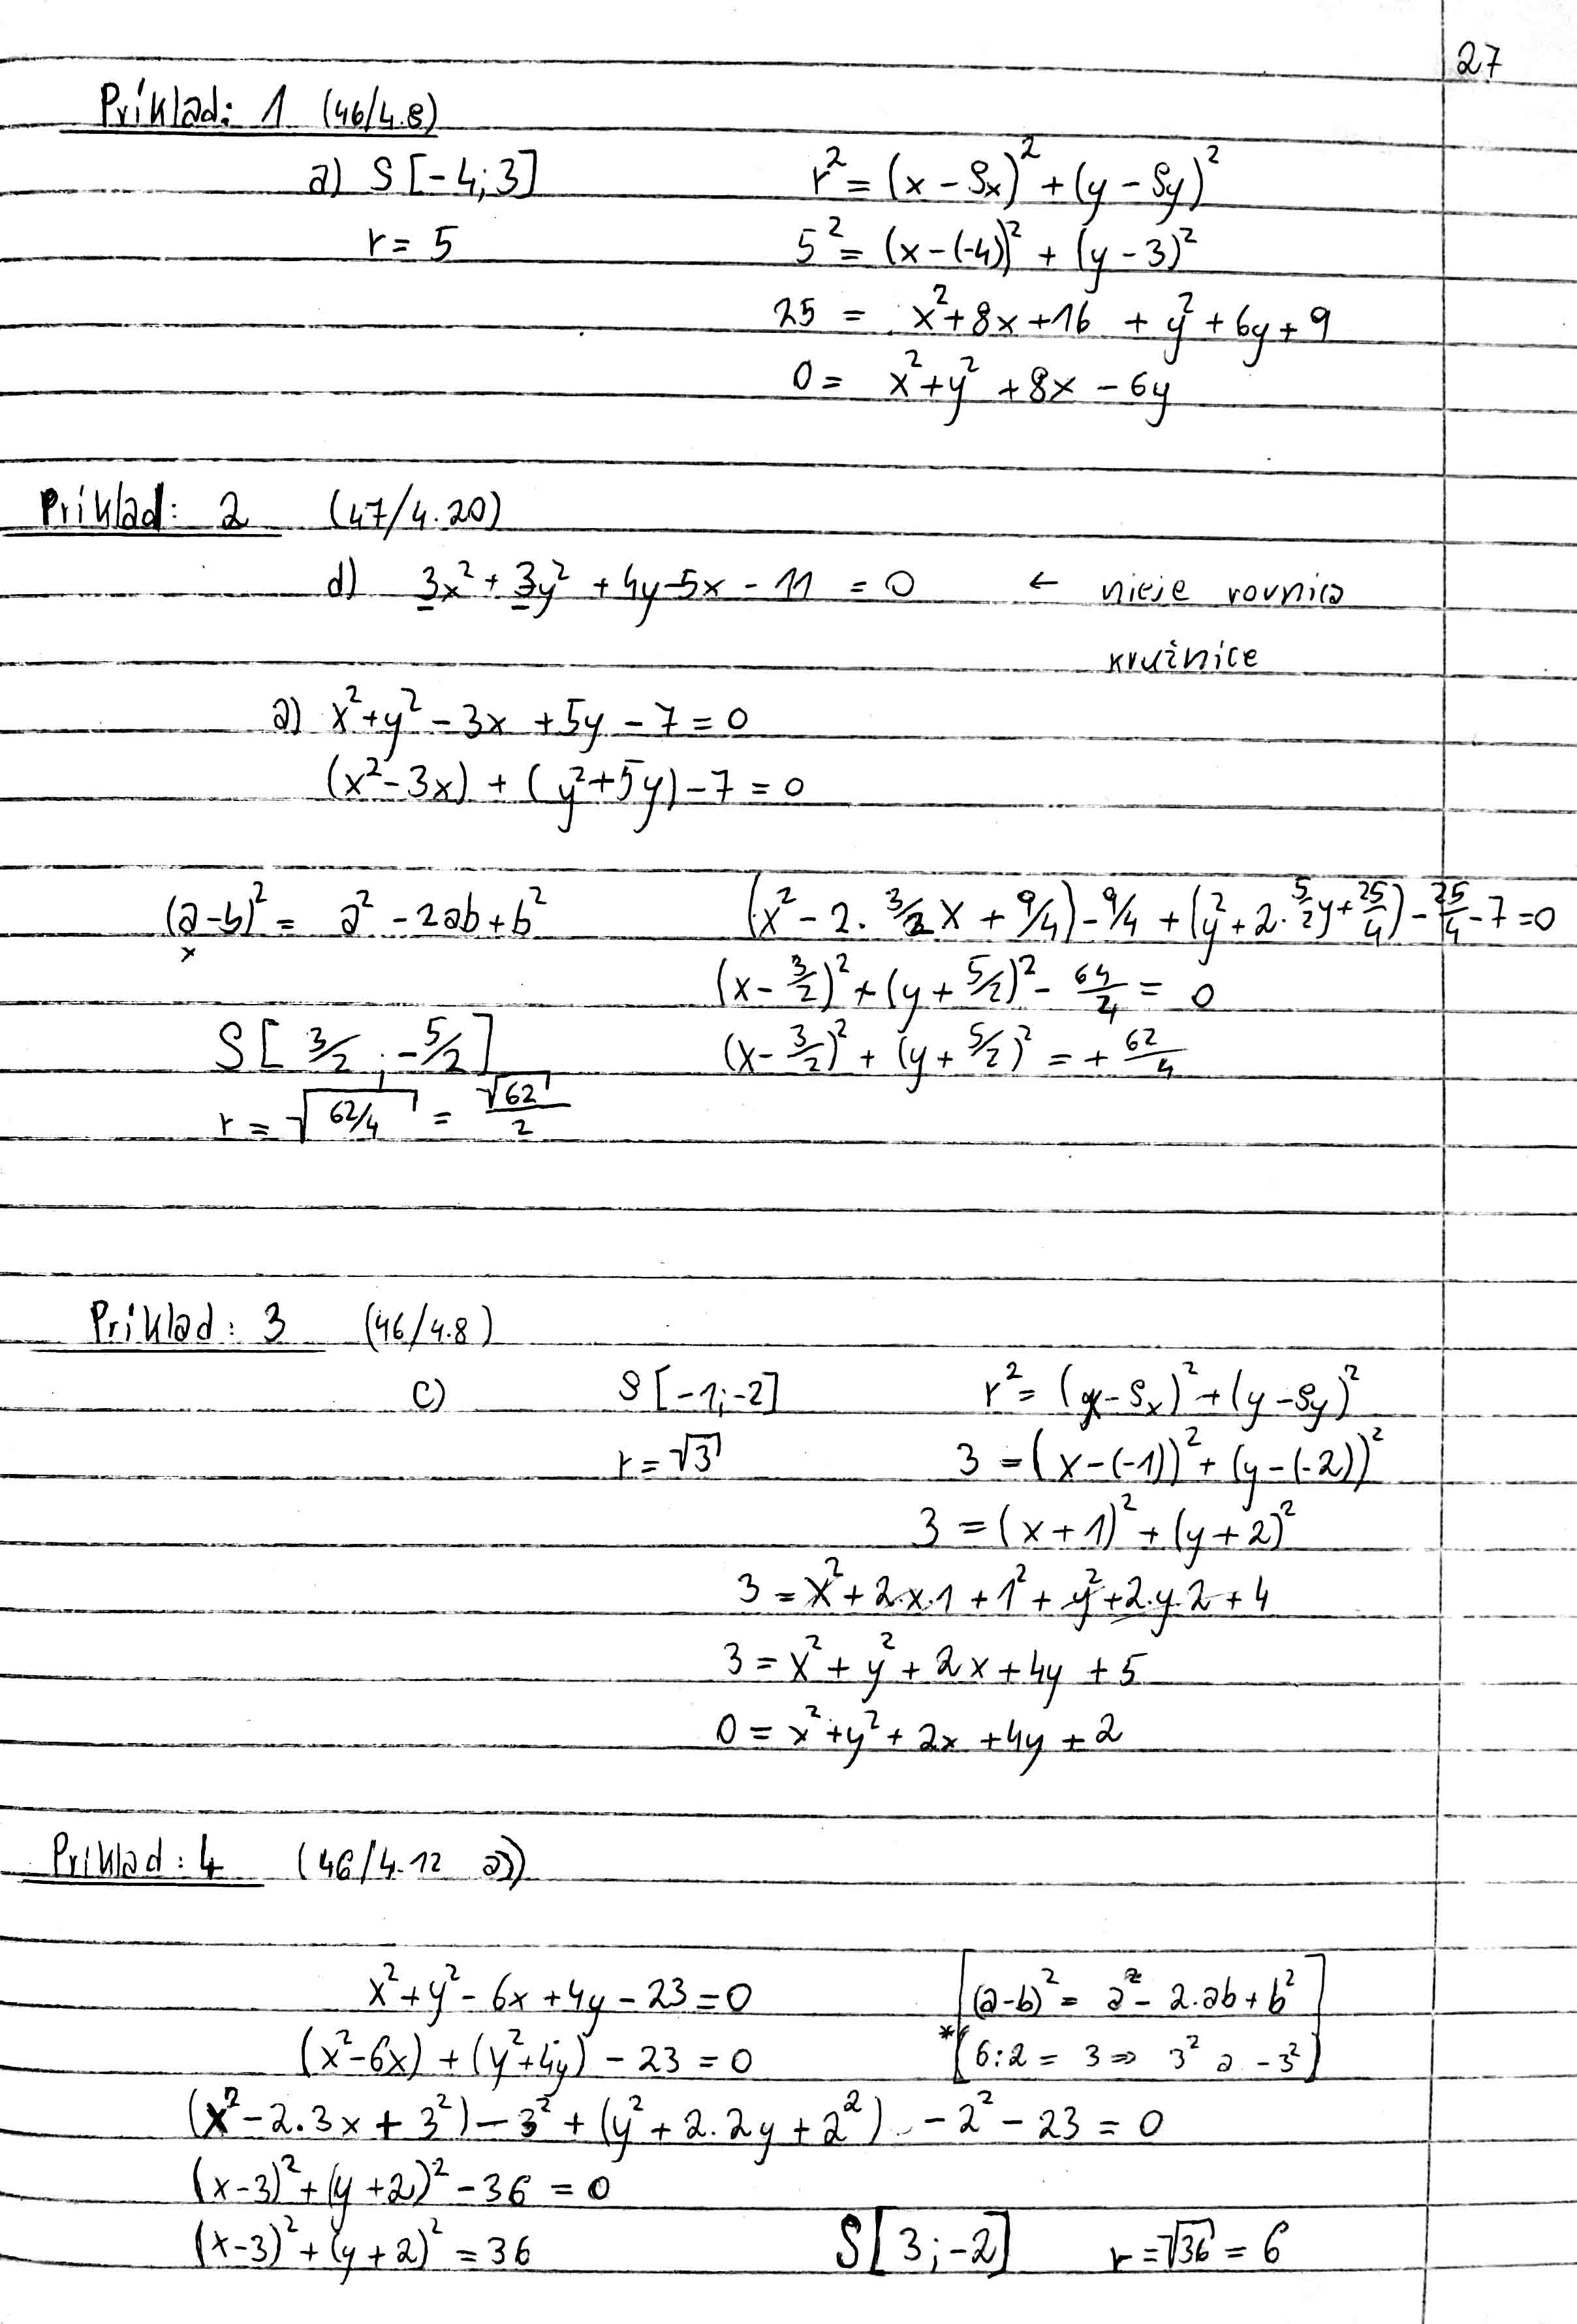 27
Príklad: 1 (46/4.8)
a) S [-4; 3] r² = (x - Sx)² + (y - Sy)²
r = 5 5² = (x-(-4))² + (y-3)²
25 = x² + 8x + 16 + y² + 6y + 9
0 = x² + y² + 8x - 6y
Príklad: 2 (47/4.20)
d) 3x² + 3y² + 4y - 5x - 11 = 0 ← nieje rovnica
kružnice
a) x² + y² - 3x + 5y - 7 = 0
(x² - 3x) + (y² + 5y) - 7 = 0
(a-b)² = a² - 2ab + b² (x² - 2. 3/2 x + 9/4) - 9/4 + (y² + 2. 5/2 y + 25/4) - 25/4 - 7 = 0
x (x - 3/2)² + (y + 5/2)² - 64/4 = 0
S [ 3/2 ; -5/2 ] (x - 3/2)² + (y + 5/2)² = + 62/4
r = √62/4 = √62/2
Príklad: 3 (46/4.8)
c) S [-1; -2] r² = (x - Sx)² + (y - Sy)²
r = √3 3 = (x-(-1))² + (y-(-2))²
3 = (x+1)² + (y+2)²
3 = x² + 2.x.1 + 1² + y² + 2.y.2 + 4
3 = x² + y² + 2x + 4y + 5
0 = x² + y² + 2x + 4y + 2
Príklad: 4 (46/4.12 a))
x² + y² - 6x + 4y - 23 = 0 [(a-b)² = a² - 2.ab + b²]
(x² - 6x) + (y² + 4y) - 23 = 0 * [6:2 = 3 ⇒ 3² a -3²]
(x² - 2.3x + 3²) - 3² + (y² + 2.2y + 2²) - 2² - 23 = 0
(x-3)² + (y+2)² - 36 = 0
(x-3)² + (y+2)² = 36 S [3; -2] r = √36 = 6